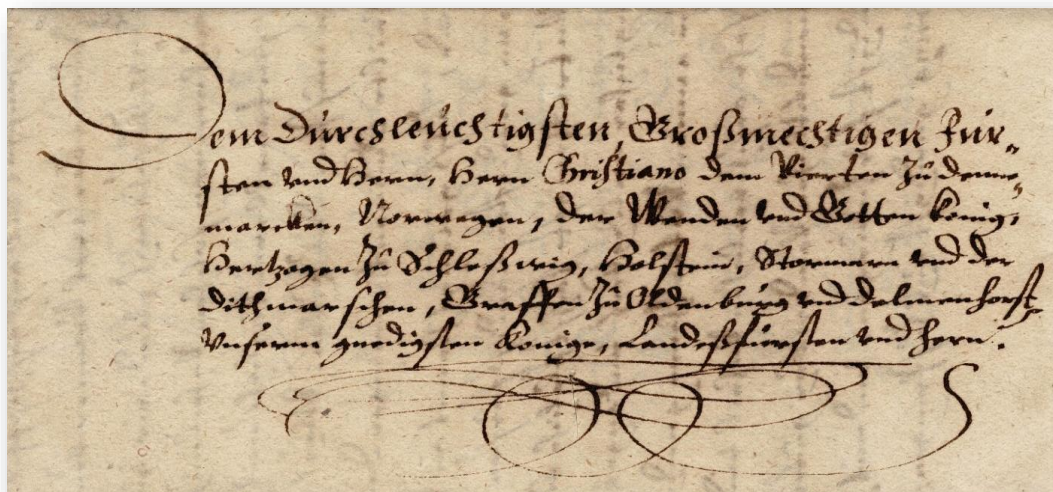 Dem Durchleuchtigsten, Großmechtigen Fur„
sten vnd Hern, Hern Christiano dem Vierten Zu denne„
marcken, Norwegen, der Wenden vnd Gotten König,
Hertzogen Zu Schleßwig, Holstein, Stormarn vnd der
dithmarschen, Graffen Zu Oldenburg vnd delmenhorst,
Vnserm gnedigsten Könige, Landeßfürsten vnd hern.